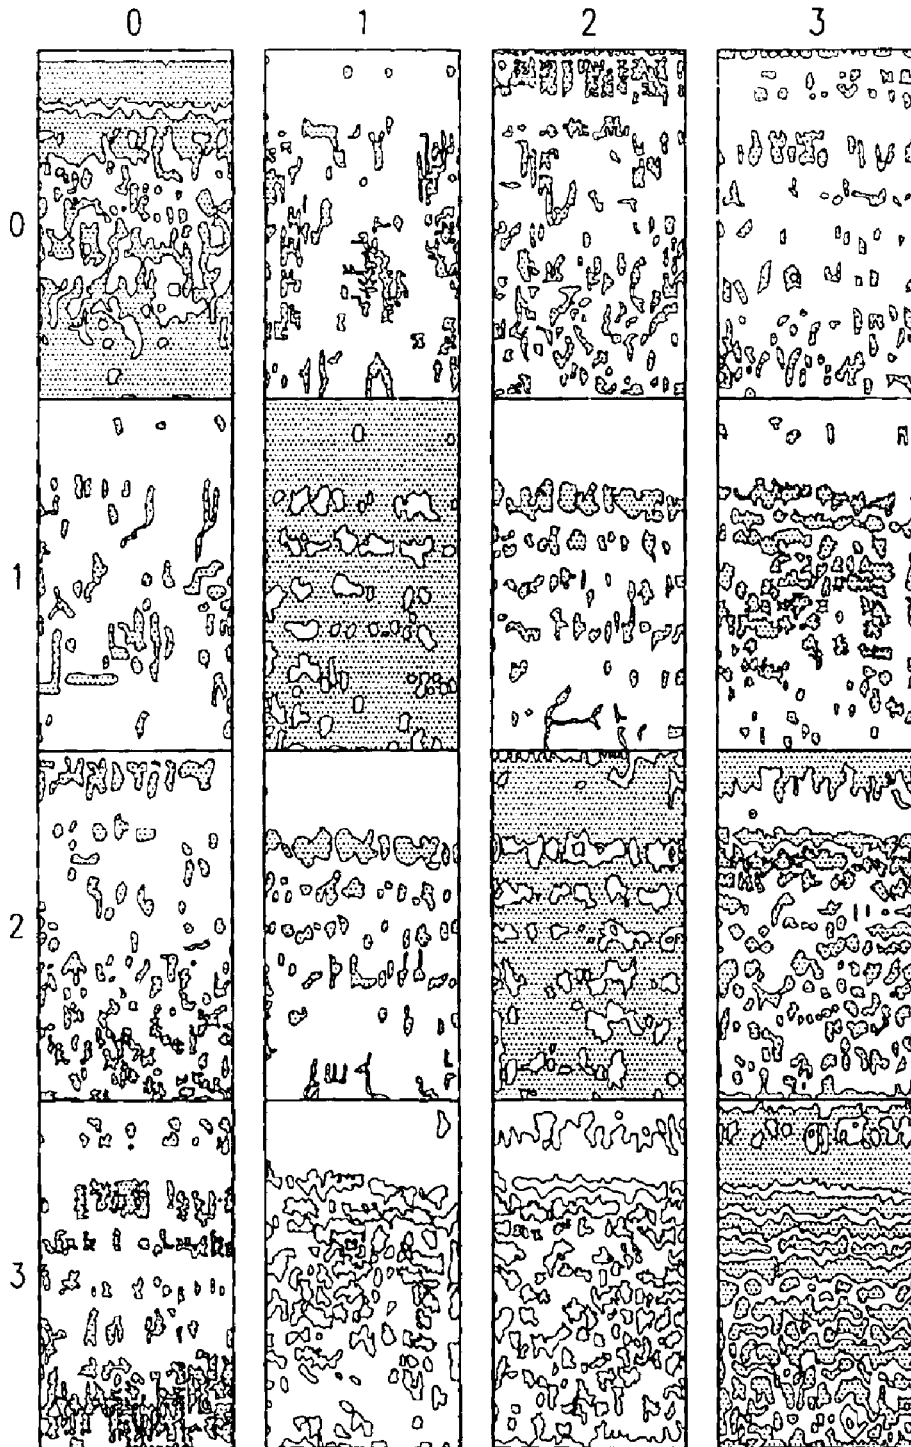 0 1 2 3
0
1
2
3